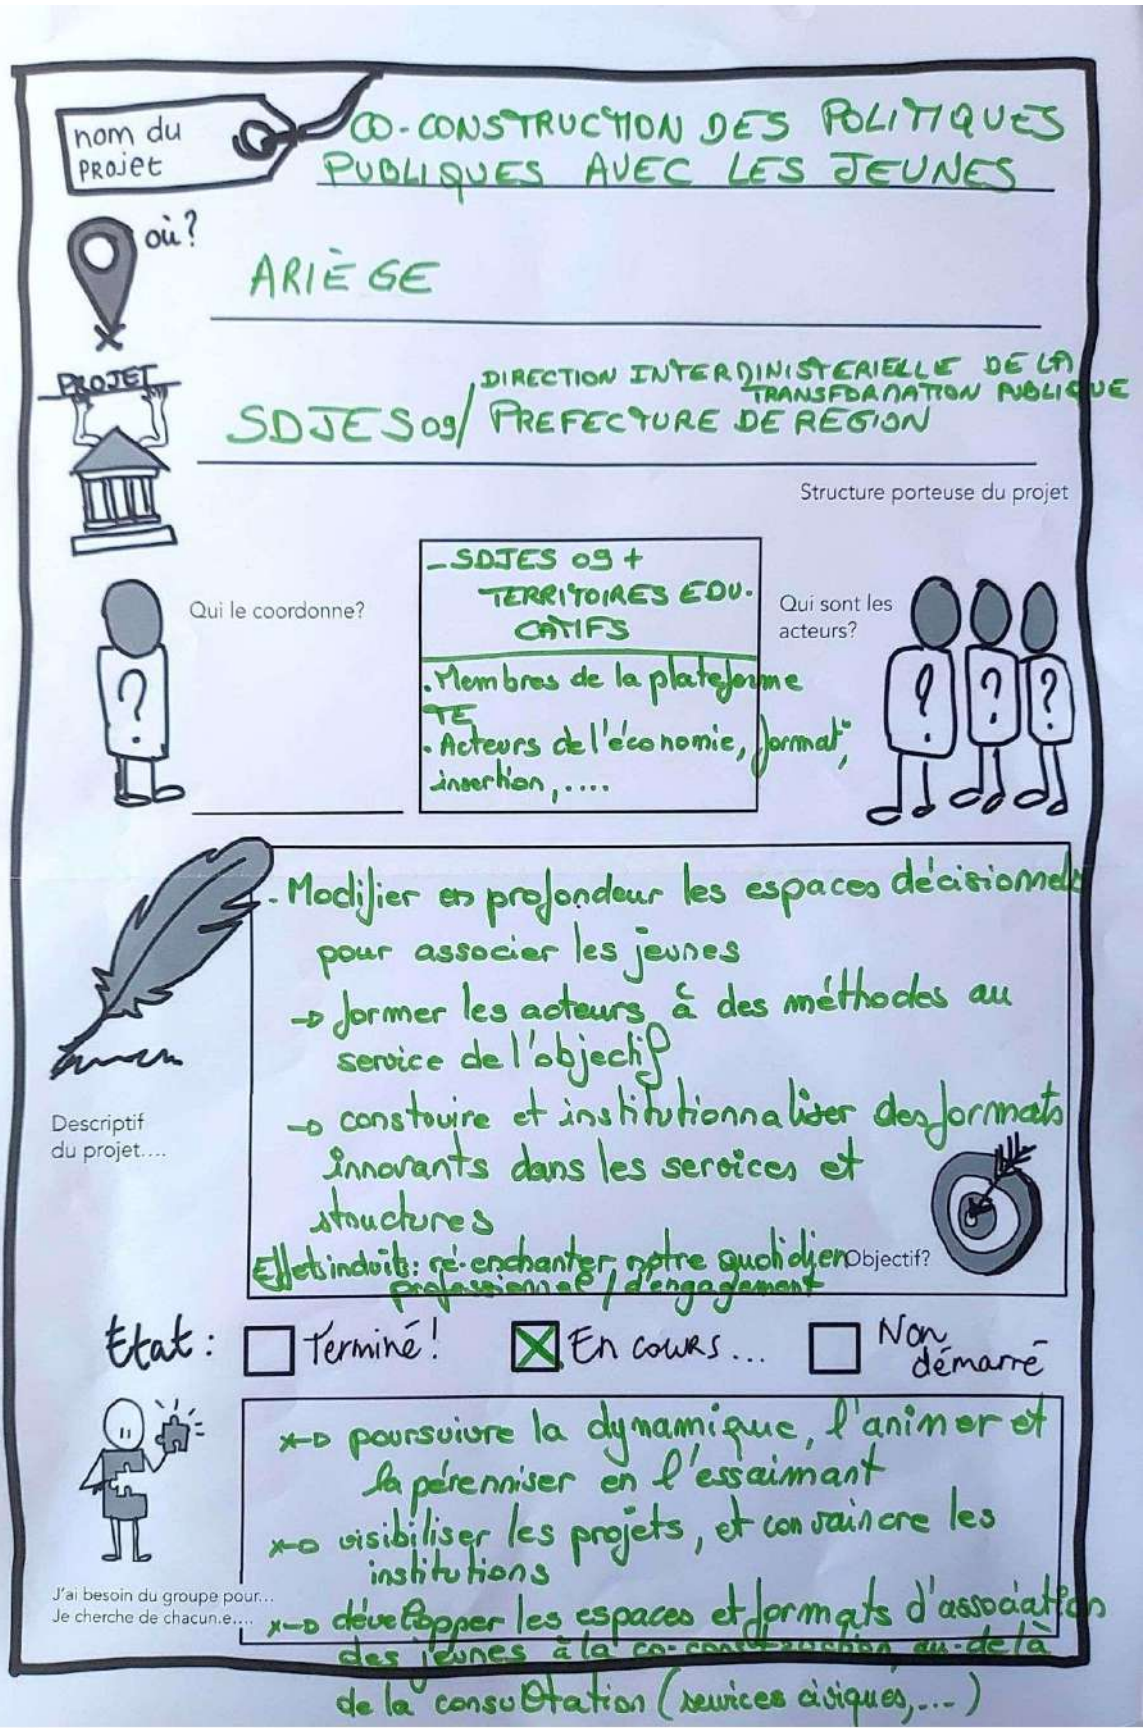 nom du
PROJet
CO-CONSTRUCTION DES POLITIQUES
PUBLIQUES AVEC LES JEUNES
où?
ARIÈGE
PROJET
DIRECTION INTERMINISTERIELLE DE LA
TRANSFORMATION PUBLIQUE
SDJES 09/ PREFECTURE DE REGION
Structure porteuse du projet
Qui le coordonne?
- SDJES 09 +
TERRITOIRES EDU-
CATIFS
Qui sont les
acteurs?
. Membres de la plateforme
TE
. Acteurs de l'économie, format°,
insertion, ....
- Modifier en profondeur les espaces décisionnels
pour associer les jeunes
→ former les acteurs à des méthodes au
service de l'objectif
→ construire et institutionnaliser des formats
innovants dans les services et
structures
Effets induits: ré-enchanter notre quotidien
professionnel / d'engagement
Descriptif
du projet....
Objectif?
Etat :
Terminé!
En cours...
Non
démarré
→ poursuivre la dynamique, l'animer et
la pérenniser en l'essaimant
→ visibiliser les projets, et convaincre les
institutions
→ développer les espaces et formats d'association
des jeunes à la co-construction au-delà
de la consultation (services civiques,...)
J'ai besoin du groupe pour...
Je cherche de chacun.e....